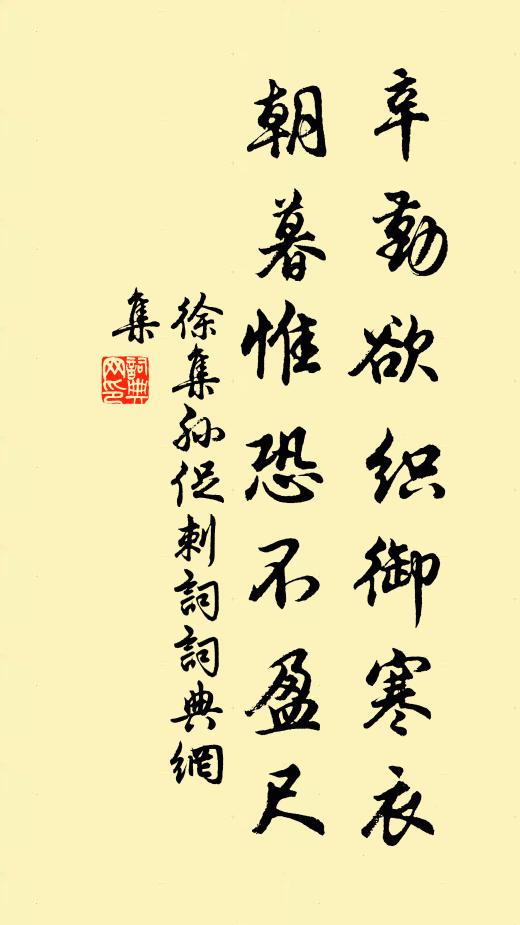 辛勤欲织御寒衣
朝暮惟恐不盈尺
徐集孙促刺詞詞典網
集
詞典
网印